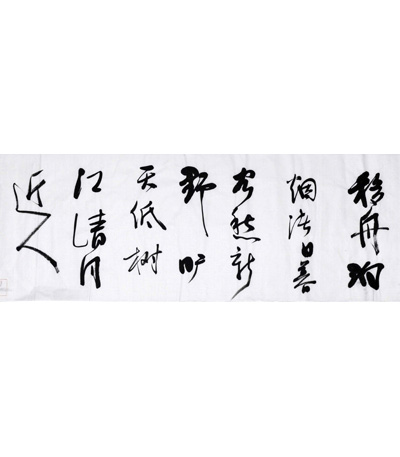 移舟泊
烟渚日暮
客愁新
野旷
天低树
江清月
近人